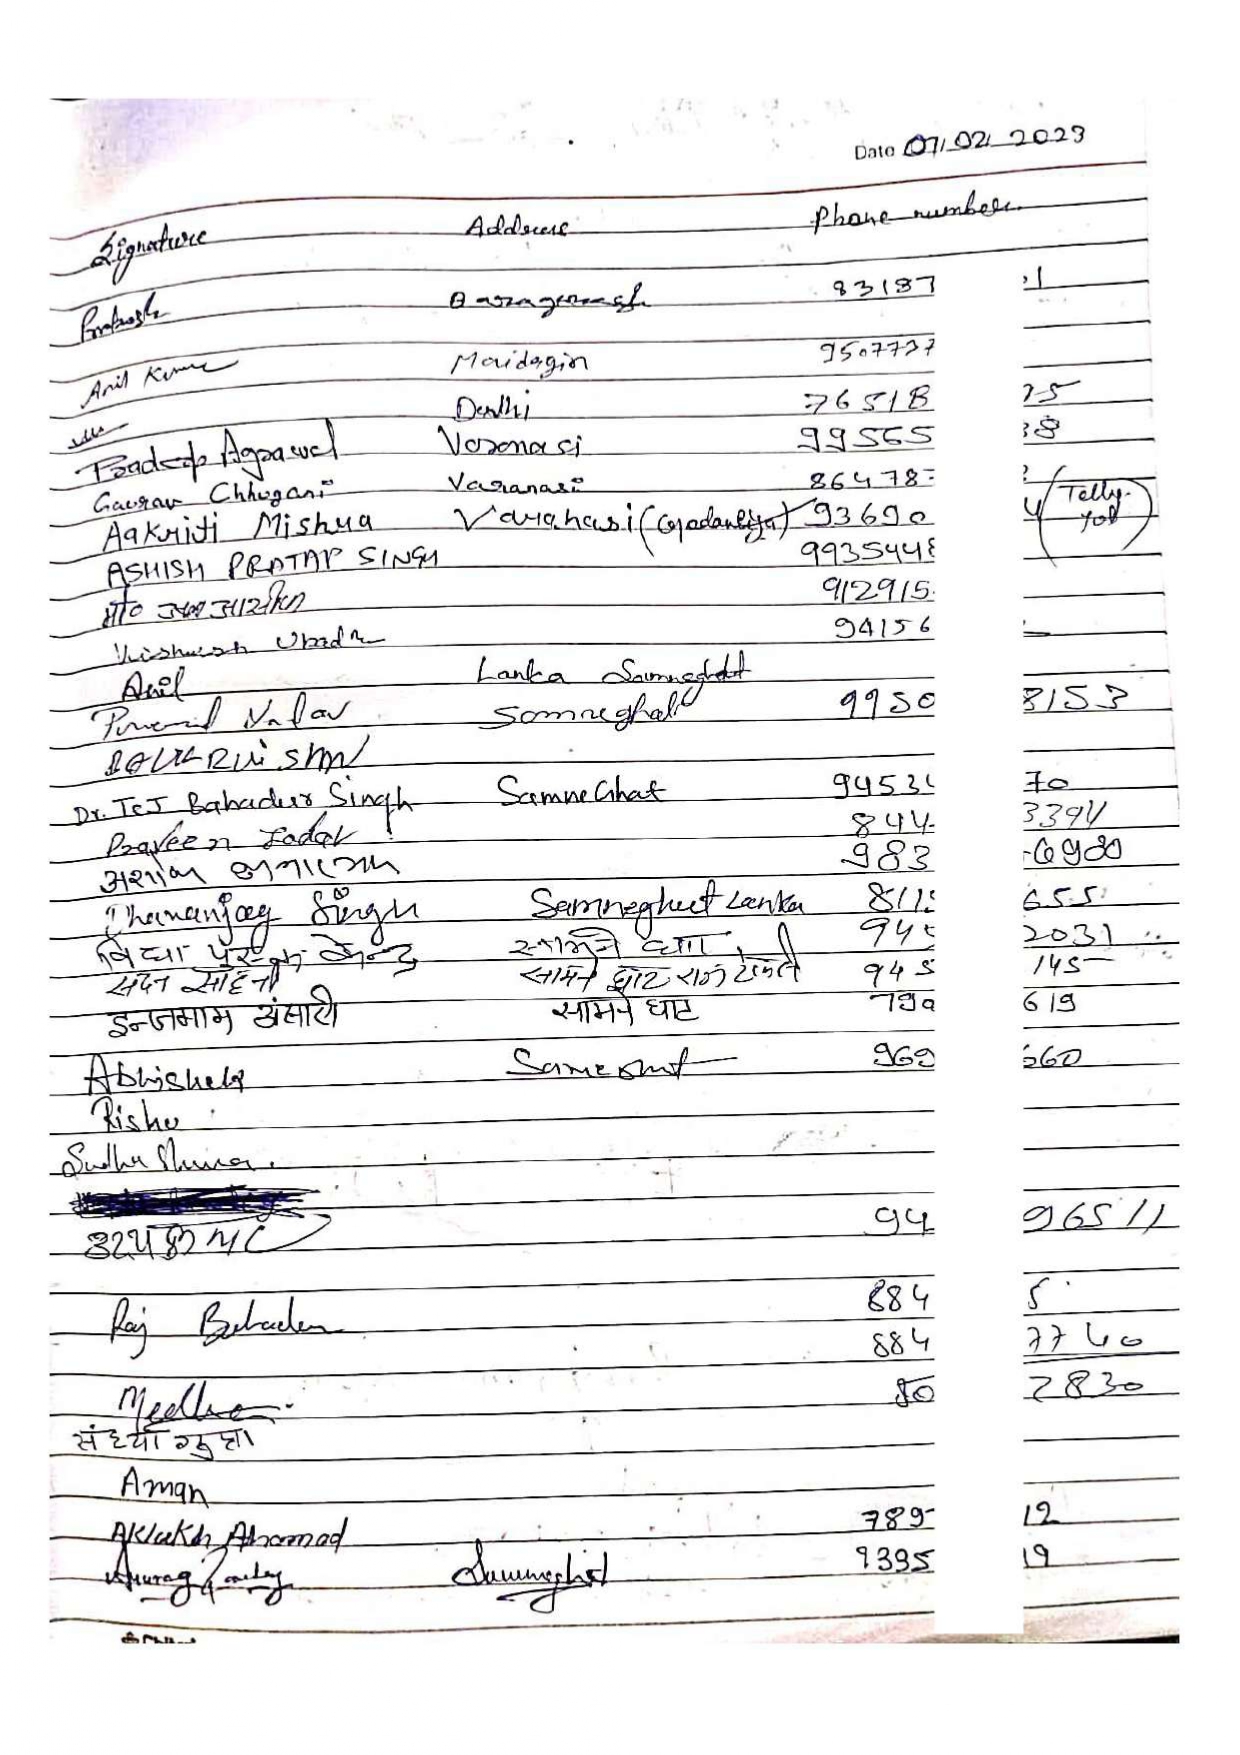 Date 07/02/2023
Signature Address Phone number
Prakash 83187 1
Anil Kumar Maidagin 9507737
Delhi 76518 25
Pradeep Agrawal Varanasi 99565 38
Gaurav Chhugani Varanasi 86478
Aakriti Mishra Varanasi (Godauliya) 93690 4 (Telly-
ASHISH PRATAP SINGH 9935448
मो० 912915
94156
Anil Lanka Samneghat
Yadav Samneghat 9950 8153
Dr. Tej Bahadur Singh Samne Ghat 9453 70
Praveen Yadav 844 3394
अशोक 983
Dhananjay Singh Samneghat Lanka 811 655
विद्या पुस्तक केन्द्र सामने घाट 945 2031
साहनी सामने घाट 945 145
इन्जमाम अंसारी सामने घाट 790 619
Abhishek Same Ghat 969 660
Rishu
Sudha
94 96511
Raj Bahadur 884 5
884 7740
Medha 80 2830
संध्या गुप्ता
Aman
Aklakh Ahamad 789 12
Anurag Pandey Samneghat 9395 19